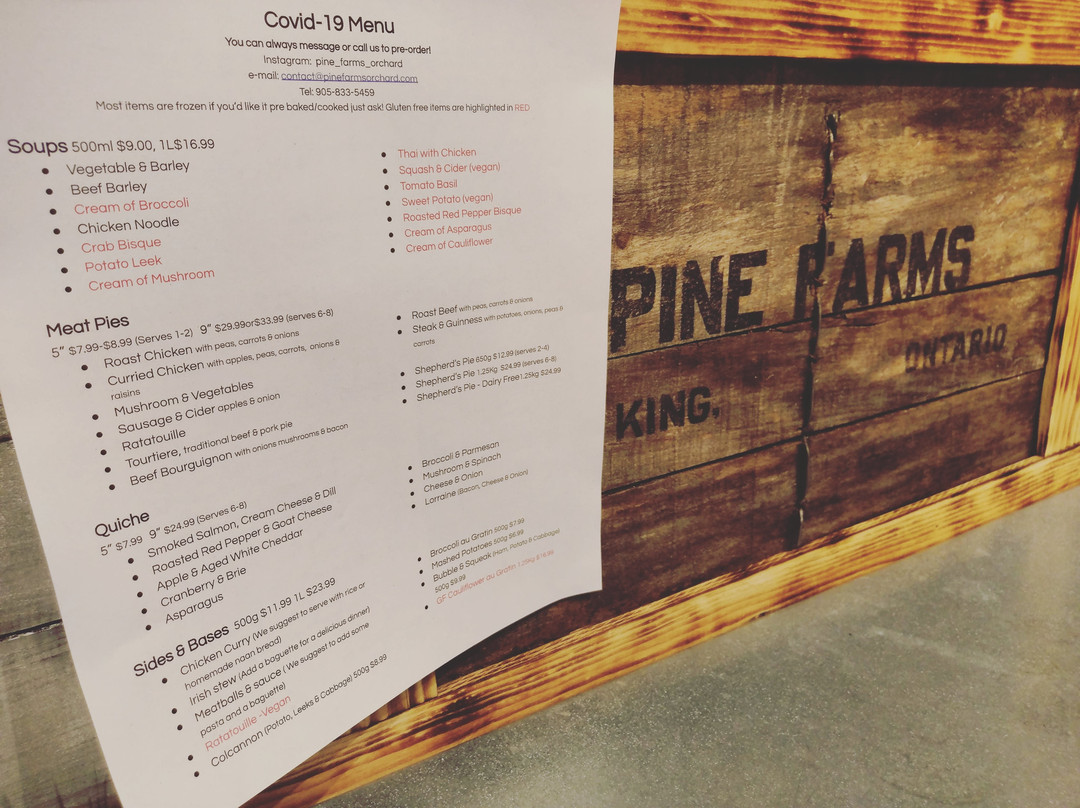 Covid-19 Menu
You can always message or call us to pre-order!
Instagram: pine_farms_orchard
e-mail: contact@pinefarmsorchard.com
Tel: 905-833-5459
Most items are frozen if you'd like it pre baked/cooked just ask! Gluten free items are highlighted in RED
Soups 500ml $9.00, 1L$16.99
Vegetable & Barley
Beef Barley
Cream of Broccoli
Chicken Noodle
Crab Bisque
Potato Leek
Cream of Mushroom
Thai with Chicken
Squash & Cider (vegan)
Tomato Basil
Sweet Potato (vegan)
Roasted Red Pepper Bisque
Cream of Asparagus
Cream of Cauliflower
Meat Pies
5" $7.99-$8.99 (Serves 1-2) 9" $29.99or$33.99 (serves 6-8)
Roast Chicken with peas, carrots & onions
Curried Chicken with apples, peas, carrots, onions &
raisins
Mushroom & Vegetables
Sausage & Cider apples & onion
Ratatouille
Tourtiere, traditional beef & pork pie
Beef Bourguignon with onions mushrooms & bacon
Roast Beef with peas, carrots & onions
Steak & Guinness with potatoes, onions, peas &
carrots
Shepherd's Pie 650g $12.99 (serves 2-4)
Shepherd's Pie 1.25Kg $24.99 (serves 6-8)
Shepherd's Pie - Dairy Free1.25kg $24.99
Quiche
5" $7.99 9" $24.99 (Serves 6-8)
Smoked Salmon, Cream Cheese & Dill
Roasted Red Pepper & Goat Cheese
Apple & Aged White Cheddar
Cranberry & Brie
Asparagus
Broccoli & Parmesan
Mushroom & Spinach
Cheese & Onion
Lorraine (Bacon, Cheese & Onion)
Sides & Bases 500g $11.99 1L $23.99
Chicken Curry (We suggest to serve with rice or
homemade naan bread)
Irish stew (Add a baguette for a delicious dinner)
Meatballs & sauce ( We suggest to add some
pasta and a baguette)
Ratatouille -Vegan
Colcannon (Potato, Leeks & Cabbage) 500g $8.99
Broccoli au Gratin 500g $7.99
Mashed Potatoes 500g $6.99
Bubble & Squeak (Ham, Potato & Cabbage)
500g $9.99
GF Cauliflower au Gratin 1.25kg
PINE FARMS
KING,
ONTARIO